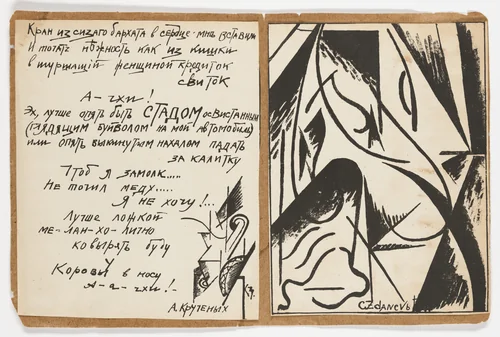 Кран из сизаго бархата в сердце мнѣ вставили
И мотать нѣжность как из кишки
в шуршащiй женщиной кредиток
свиток
А-чхи!
Эх, лучше опять быть СТАДОМ освистанным
(глядящим буйволом на мой автомобиль)
или опять выкинутым нахалом падать
за калитку
Чтоб я замолк.....
Не точил меду.....
Я не хочу!...
Лучше ложкой
ме-лан-хо-лично
ковырять буду
Коровы в носу
А-а-чхи!-
А. Крученых
C. ZdANEVb